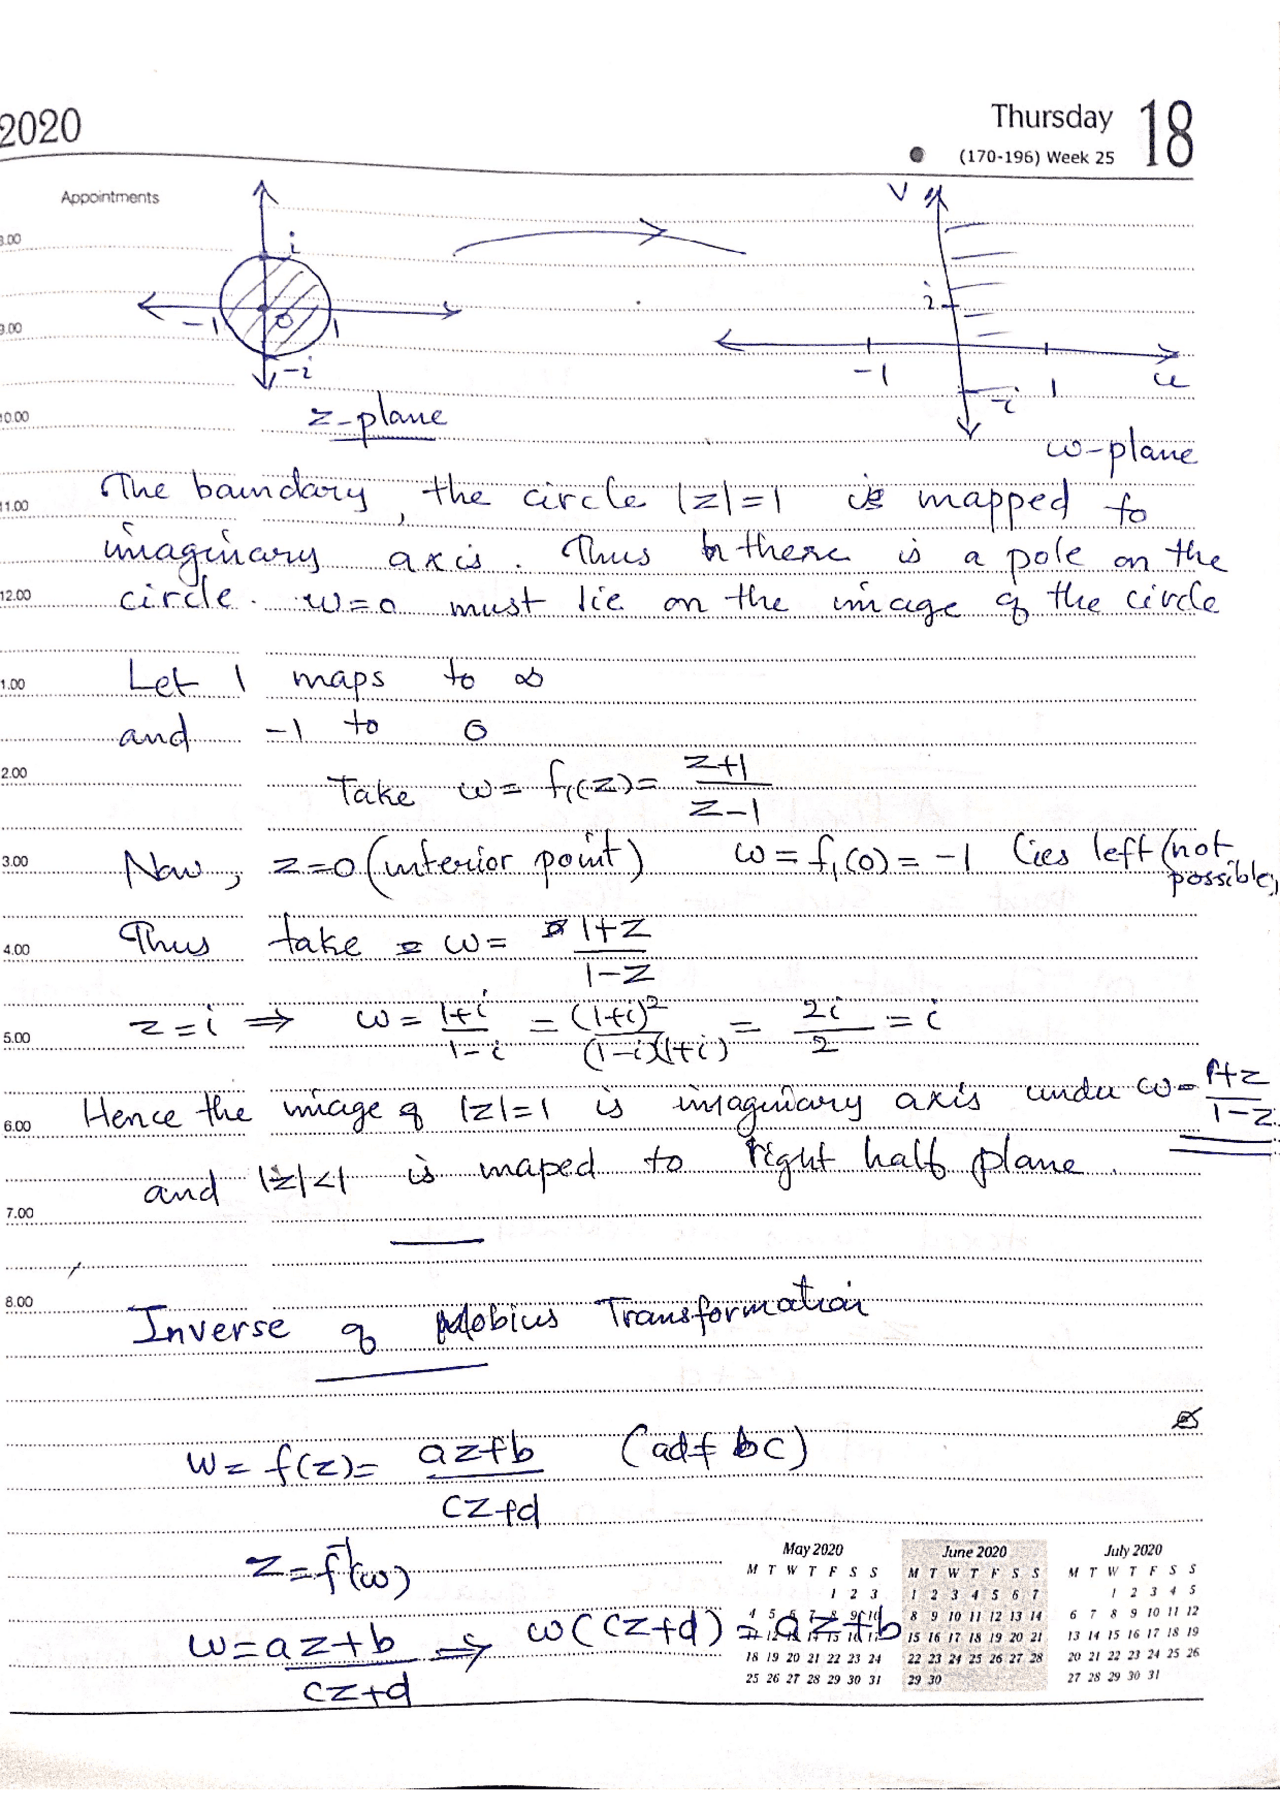 2020
Thursday 18
(170-196) Week 25
Appointments
8.00
9.00
10.00
11.00
12.00
1.00
2.00
3.00
4.00
5.00
6.00
7.00
8.00
i
-1 0 1
-i
z-plane
V
i
-1 1 u
-i
w-plane
The boundary, the circle |z|=1 is mapped to
imaginary axis. Thus there is a pole on the
circle. w=0 must lie on the image of the circle
Let 1 maps to ∞
and -1 to 0
Take w = f₁(z) = (z+1)/(z-1)
Now, z=0 (interior point) w = f₁(0) = -1 lies left (not possible)
Thus take w = (1+z)/(1-z)
z = i ⇒ w = (1+i)/(1-i) = (1+i)²/((1-i)(1+i)) = 2i/2 = i
Hence the image of |z|=1 is imaginary axis under w = (1+z)/(1-z)
and |z|<1 is maped to right half plane.
Inverse of Mobius Transformation
w = f(z) = (az+b)/(cz+d) (ad ≠ bc)
z = f⁻¹(w)
w = (az+b)/(cz+d) ⇒ w(cz+d) = az+b
May 2020
M T W T F S S
1 2 3
4 5 6 7 8 9 10
11 12 13 14 15 16 17
18 19 20 21 22 23 24
25 26 27 28 29 30 31
June 2020
M T W T F S S
1 2 3 4 5 6 7
8 9 10 11 12 13 14
15 16 17 18 19 20 21
22 23 24 25 26 27 28
29 30
July 2020
M T W T F S S
1 2 3 4 5
6 7 8 9 10 11 12
13 14 15 16 17 18 19
20 21 22 23 24 25 26
27 28 29 30 31